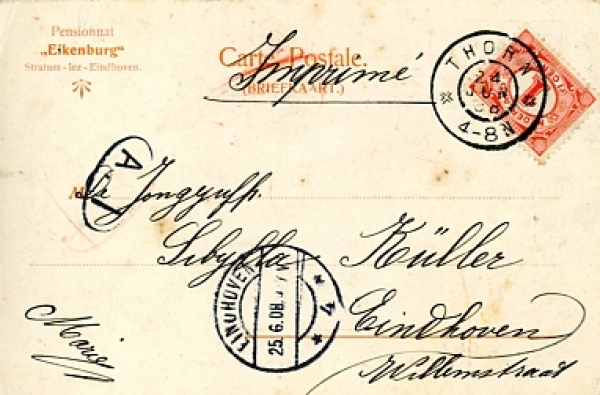 Pensionnat
„Eikenburg"
Stratum-lez-Eindhoven.
Carte Postale.
(BRIEFKAART.)
Imprimé
THORN
24
JUN
08
4-8N
1
A
1
Jongjufr.
Sibylla Küller
Eindhoven
Willemstraat
Marie
EINDHOVEN
25.6.08
4